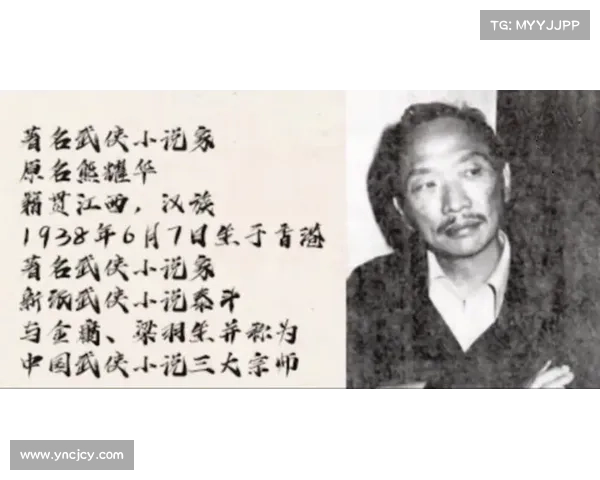 TG: MYYJJPP
著名武侠小说家
原名熊耀华
籍贯江西，汉族
1938年6月7日生于香港
著名武侠小说家
新派武侠小说泰斗
与金庸、梁羽生并称为
中国武侠小说三大宗师
www.yncjcy.com